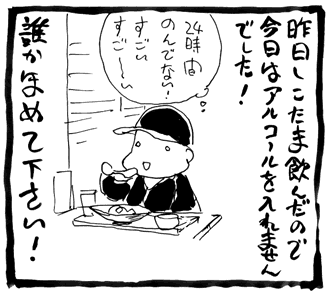 昨日しこたま飲んだので
今日はアルコールを入れません
でした！
24時間
のんでない！
すごい
すご～い
誰かほめて下さい！